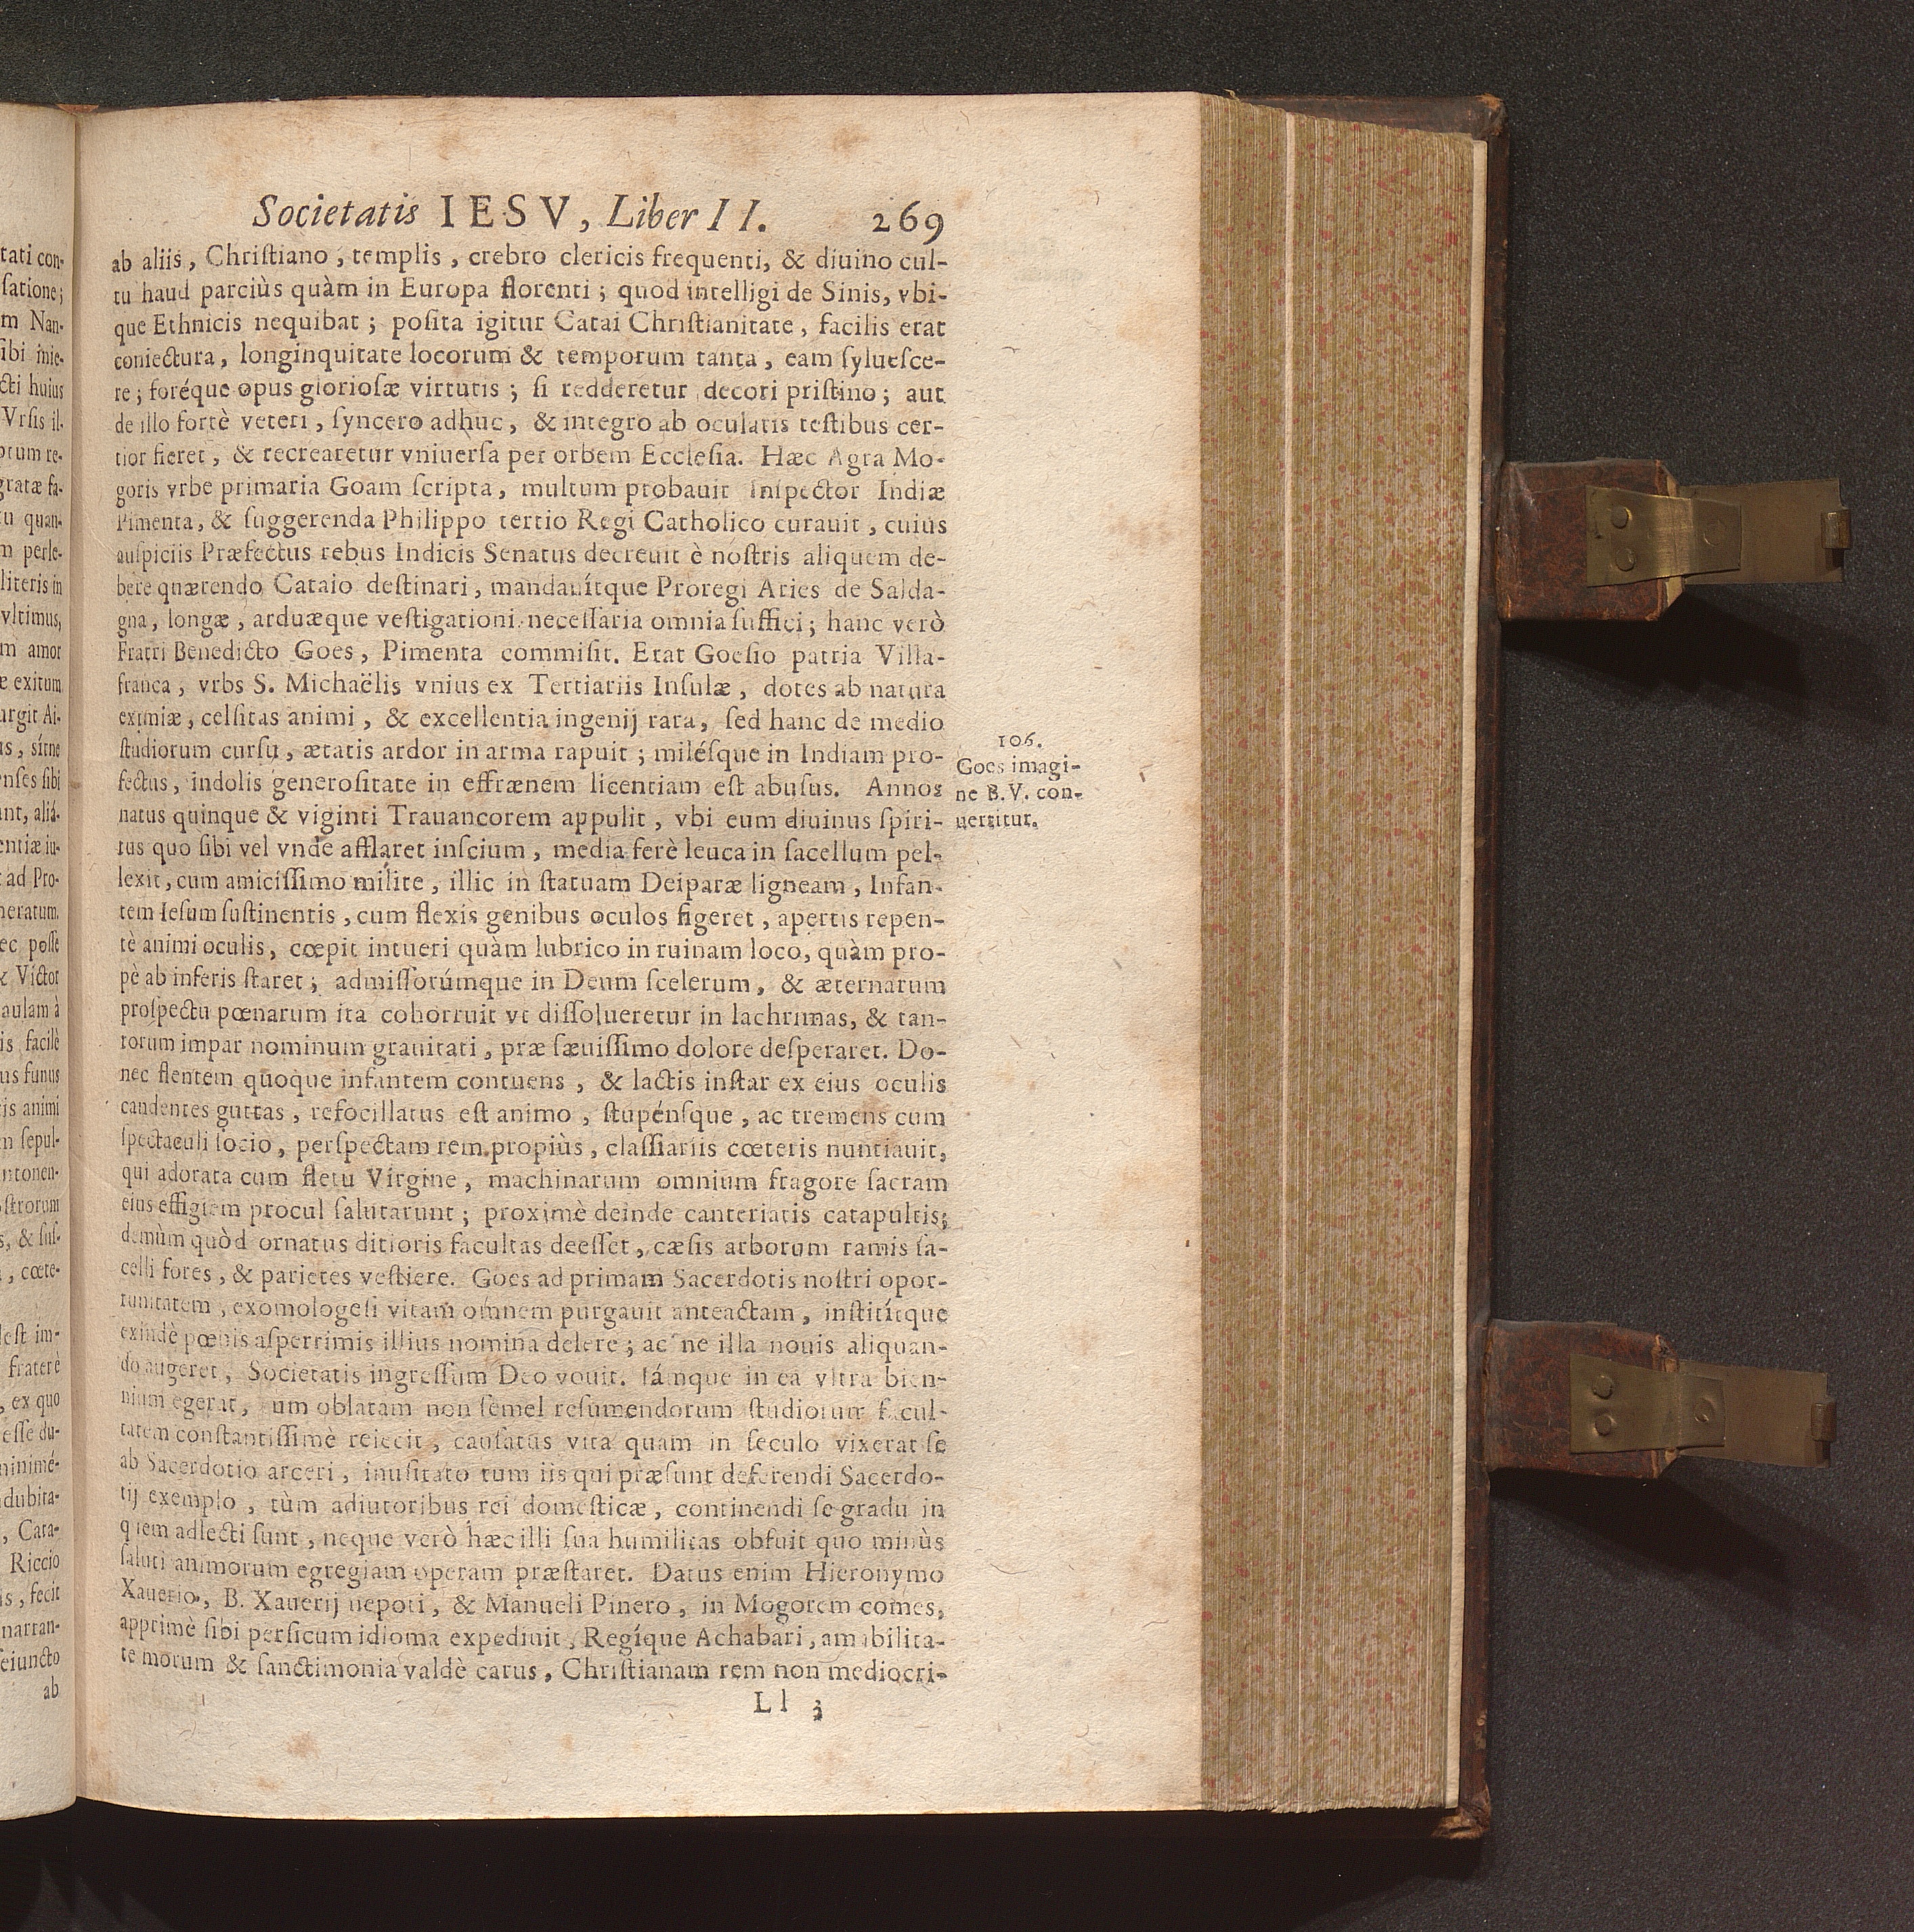 Societatis IESV, Liber II. 269
ab aliis, Chriſtiano, templis, crebro clericis frequenti, & diuino cul-
tu haud parciùs quàm in Europa florenti; quod intelligi de Sinis, vbi-
que Ethnicis nequibat; poſita igitur Catai Chriſtianitate, facilis erat
coniectura, longinquitate locorum & temporum tanta, eam ſylueſce-
re; foréque opus glorioſæ virtutis; ſi redderetur decori priſtino; aut
de illo fortè veteri, ſyncero adhuc, & integro ab oculatis teſtibus cer-
tior fieret, & recrearetur vniuerſa per orbem Eccleſia. Hæc Agra Mo-
goris vrbe primaria Goam ſcripta, multum probauit Inſpector Indiæ
Pimenta, & ſuggerenda Philippo tertio Regi Catholico curauit, cuius
auſpiciis Præfectus rebus Indicis Senatus decreuit è noſtris aliquem de-
bere quærendo Cataio deſtinari, mandauítque Proregi Aries de Salda-
gna, longæ, arduæque veſtigationi neceſſaria omnia ſuffici; hanc verò
Fratri Benedicto Goes, Pimenta commiſit. Erat Goeſio patria Villa-
franca, vrbs S. Michaëlis vnius ex Tertiariis Inſulæ, dotes ab natura
eximiæ, celſitas animi, & excellentia ingenij rara, ſed hanc de medio
ſtudiorum curſu, ætatis ardor in arma rapuit; miléſque in Indiam pro-
fectus, indolis generoſitate in effrænem licentiam eſt abuſus. Annos
natus quinque & viginti Trauancorem appulit, vbi eum diuinus ſpiri-
tus quo ſibi vel vnde afflaret inſcium, media ferè leuca in ſacellum pel-
lexit, cum amiciſſimo milite, illic in ſtatuam Deiparæ ligneam, Infan-
tem Ieſum ſuſtinentis, cum flexis genibus oculos figeret, apertis repen-
tè animi oculis, cœpit intueri quàm lubrico in ruinam loco, quàm pro-
pè ab inferis ſtaret; admiſſorúmque in Deum ſcelerum, & æternarum
proſpectu pœnarum ita cohorruit vt diſſolueretur in lachrimas, & tan-
torum impar nominum grauitati, præ ſæuiſſimo dolore deſperaret. Do-
nec flentem quoque infantem contuens, & lactis inſtar ex eius oculis
candentes guttas, refocillatus eſt animo, ſtupénſque, ac tremens cum
ſpectaculi ſocio, perſpectam rem propiùs, claſſiariis cœteris nuntiauit,
qui adorata cum fletu Virgine, machinarum omnium fragore ſacram
eius effigiem procul ſalutarunt; proximè deinde canteriatis catapultis;
demùm quòd ornatus ditioris facultas deeſſet, cæſis arborum ramis ſa-
celli fores, & parietes veſtiere. Goes ad primam Sacerdotis noſtri opor-
tunitatem, exomologeſi vitam omnem purgauit anteactam, inſtitítque
exindè pœnis aſperrimis illius nomina delere; ac ne illa nouis aliquan-
do augeret, Societatis ingreſſum Deo vouit. Iámque in ea vltra bien-
nium egerat, um oblatam non ſemel reſumendorum ſtudiorum facul-
tatem conſtantiſſimè reiecit, cauſatus vita quam in ſeculo vixerat ſe
ab Sacerdotio arceri, inuſitato tum iis qui præſunt deferendi Sacerdo-
tij exemplo, tùm adiutoribus rei domeſticæ, continendi ſe gradu in
quem adlecti ſunt, neque verò hæc illi ſua humilitas obfuit quo minùs
ſaluti animorum egregiam operam præſtaret. Datus enim Hieronymo
Xauerio, B. Xauerij nepoti, & Manueli Pinero, in Mogorem comes,
apprimè ſibi perſicum idioma expediuit, Regíque Achabari, amabilita-
te morum & ſanctimonia valdè carus, Chriſtianam rem non mediocri-
Ll 3
106.
Goes imagi-
ne B.V. con-
uertitur.